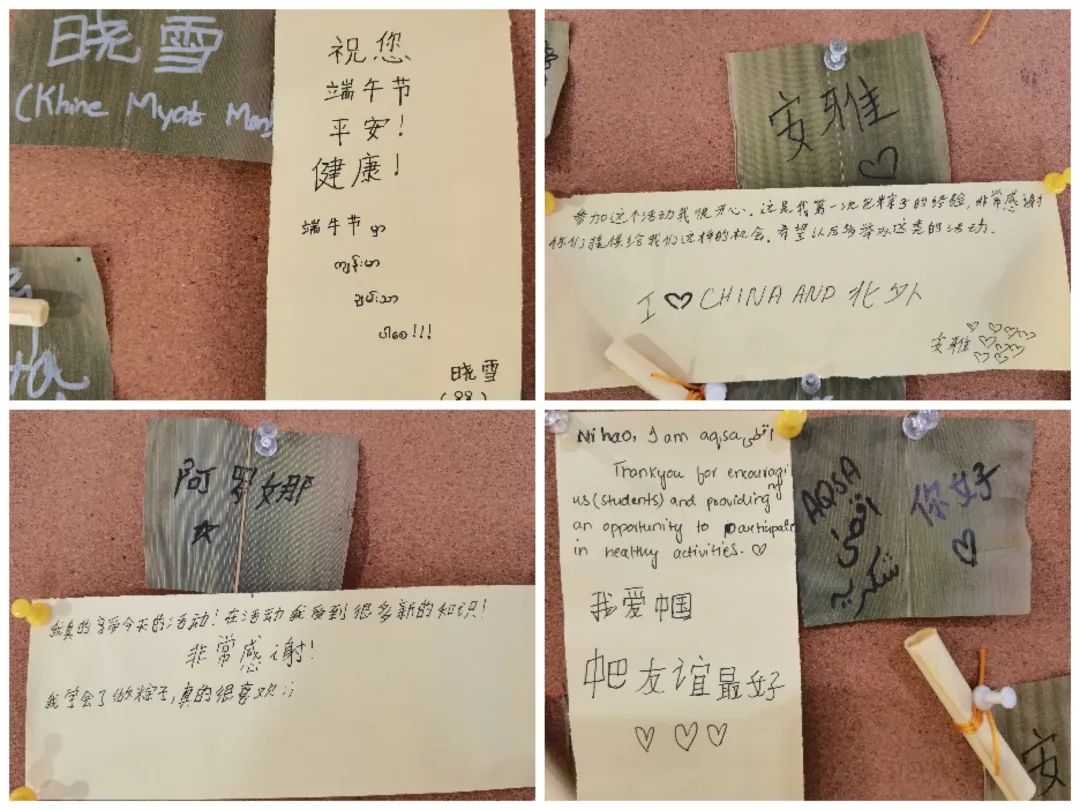 晓雪
(Khine Myat Mon)
祝您
端午节
平安!
健康!
端午节 မှာ
ကျန်းမာ
ချမ်းသာ
ပါစေ!!!
晓雪
安雅
参加这个活动我很开心。这是我第一次包粽子的经验,非常感谢
你们提供给我们这样的机会。希望以后多举办这类的活动.
I ♡ CHINA AND 北外
安雅
阿罗娜
我真的享受今天的活动!在活动我受到很多新的知识!
非常感谢!
我学会了做粽子,真的很喜欢
Ni hao, I am aqsa اقصیٰ
Thankyou for encouraging
us (students) and providing
an opportunity to participate
in healthy activities. ♡
我爱中国
中巴友谊最好
♡ ♡ ♡
AQSA
اقصیٰ
شکریہ
你好
♡
安